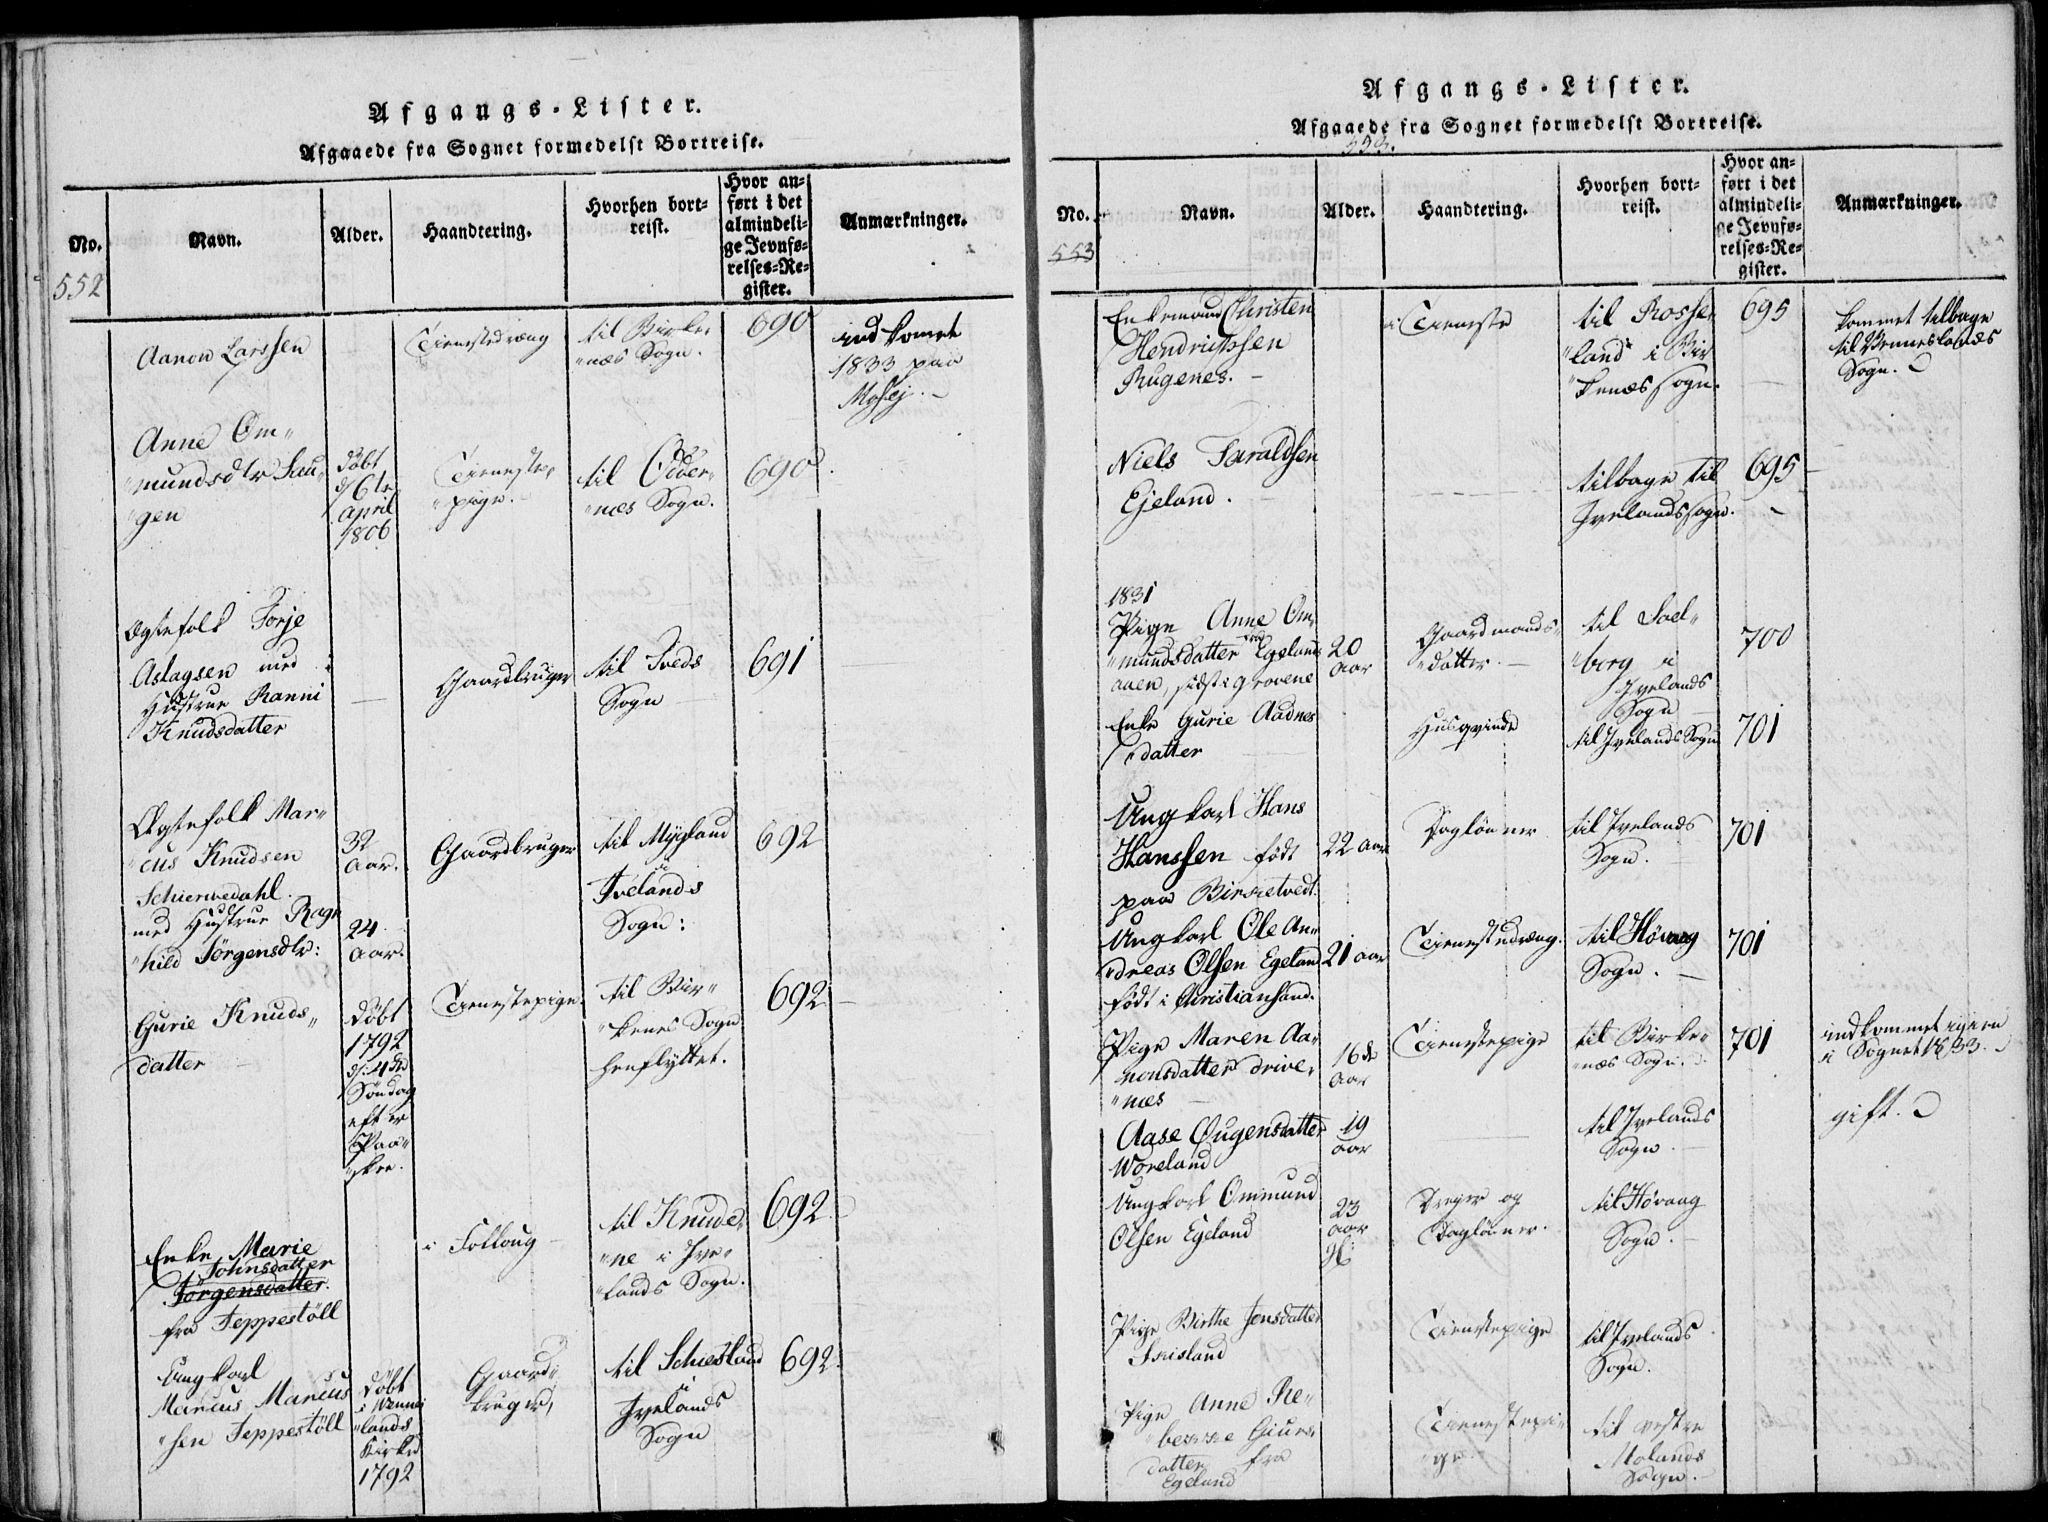 Afgangs-Lister.
Afgaaede fra Sognet formedelst Bortreise.
No.
Navn.
Alder.
Haandtering.
Hvorhen bort-
reist.
Hvor an-
ført i det
almindeli-
ge Jevnfø-
relses-Re-
gister.
Anmærkninger.
552
Aanon Larssen
Tienestedreng
til Birke-
"næs Sogn.
690
indkomet
1833 paa
Anne Om"
"mundsdtr Sau"
"gen
døbt
d/6te
April
1806
Tieneste-
"pige.
til Odder-
"næs Sogn.
690
Ægtefolk Torje
Aslagsen med
Hustrue Ranni
Knudsdatter
Gaardbruger
til Tveds
Sogn
691
Ægtefolk Mar"
"cus Knudsen
Schierwedahl.
med Hustrue Ragn
"hild Jörgensdtr:
32
Aar.
24
Aar.
Gaardbruger
til Mygland
i
Ivelands
Sogn:
692
Gurie Knuds"
datter
døbt
1792
d. 4de
Søndag
efter
Paa"
"ske.
Tienestepige.
til Bir"
"kenes Sogn
henflyttet.
692
Enke Marie
Johnsdatter
Jörgensdatter.
fra Jeppestöll
i Follaug
til Knude-
"ne i Ive"
"lands Sogn.
692
Ungkarl
Marcus Marcus
"sen Jeppestöll
døbt
i Wennes
"lands
Kirke
1792
Gaard"
bruger,
til Schiesland
i
Ivelands
Sogn
692.
Afgangs-Lister.
Afgaaede fra Sognet formedelst Bortreise.
553.
No.
Navn.
Alder.
Haandtering.
Hvorhen bort-
reist.
Hvor an-
ført i det
almindeli-
ge Jevnfø-
relses-Re-
gister.
Anmærkninger.
553
Enkemand Christen
Hendrichsen
Rugenes.
i Tieneste
til Rosse-
"land i Bir
"kenæs Sogn.
695
kommet tilbage
til Wenneslands
Sogn.
Niels Taraldsen
Ejeland.
tilbage til
Ivelands Sogn.
695
1831
Pige Anne Om-
"mundsdatter fra Egelands
aaen, sidst i Grovene
20
Aar
Gaardmands-
"datter.
til Sæl"
"berg i
Ivelands
Sogn
700
Enke Gurie Aadnes
datter
Husqvinde
til Ivelands Sogn
701
Ungkarl Hans
Hanssen født
paa Birketvedt.
22 Aar
Dagløner
til Ivelands
Sogn.
701
Ungkarl Ole An-
"dreas Olsen Egeland
født i Christiansand.
21 Aar
Tienestedreng.
til Høvaag
Sogn.
701
Pige Maren Aa-
nonsdatter Drive-
"næs
16de
Aar
Tienestepige
til Birke"
"næs Sogn.
701
indkommet igien
i Sognet 1833.
Aase Øugensdatter
Woreland
19
Aar
til Ivelands
Sogn.
gift.
Ungkarl Ommund
Olsen Egeland
23
Aar
Dreyer og
Dagløner.
til Høvaag
Sogn.
Pige Birthe Jensdatter
Tienestepige
til Ivelands
Sogn.
Pige Anne Re-
"becca Giurs
datter fra
Egeland
Tienestepi-
"ge.
til vestre
Molands
Sogn.